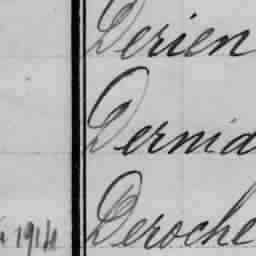 Derien
Dernia
1914 Deroche